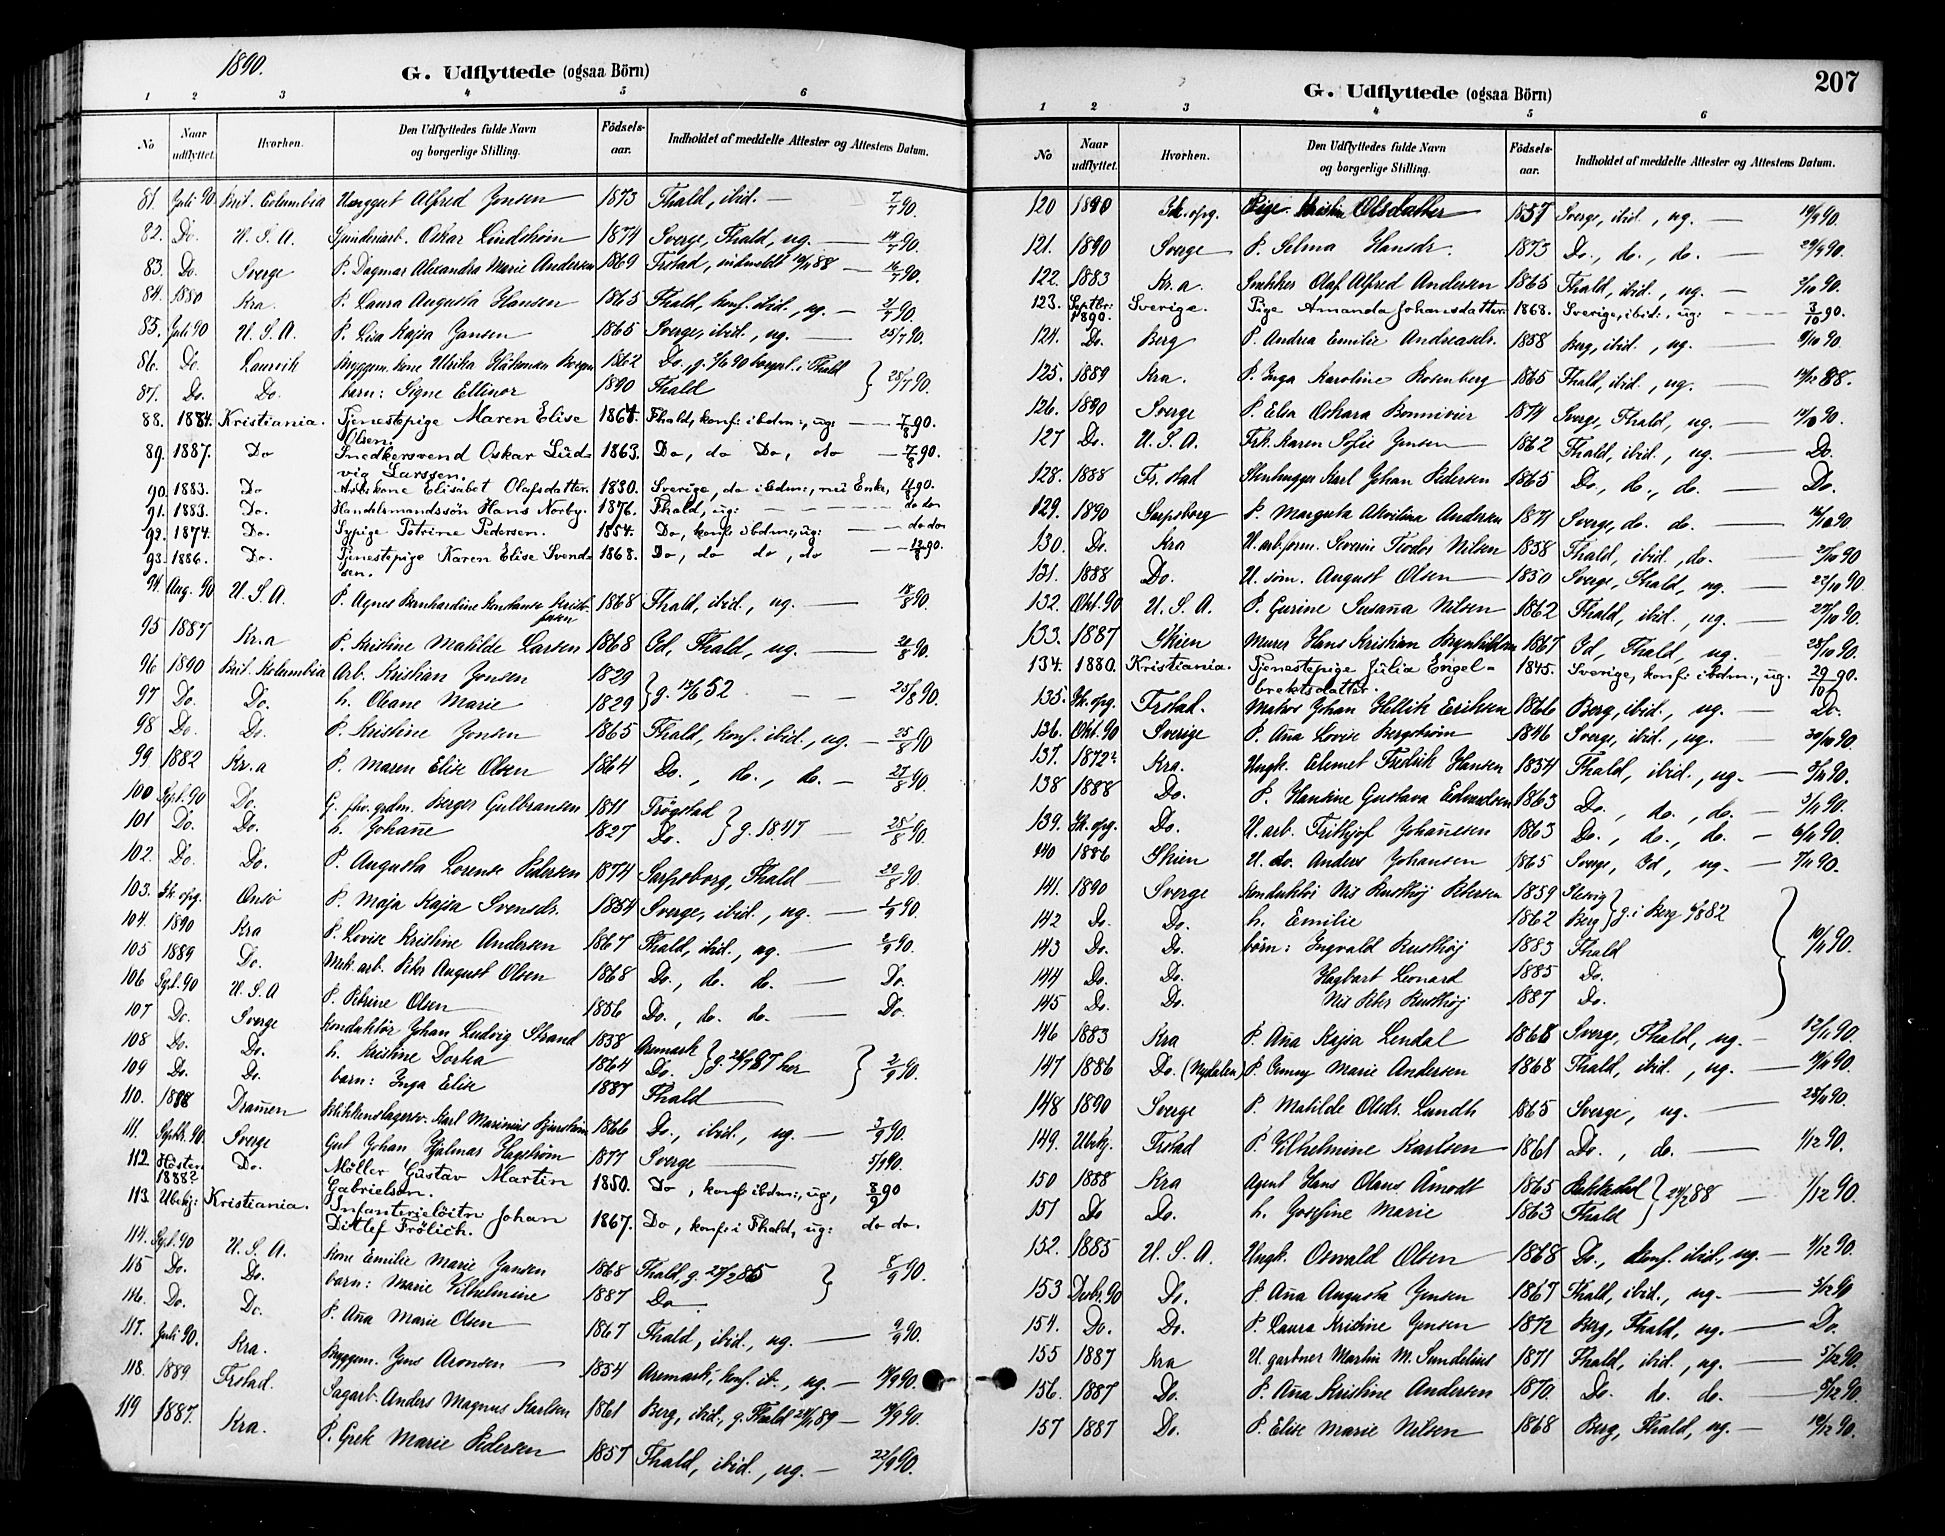 1890.
G. Udflyttede (ogsaa Börn)
1 2 3 4 5 6
No Naar udflyttet. Hvorhen. Den Udflyttedes fulde Navn og borgerlige Stilling. Födsels-aar. Indholdet af meddelte Attester og Attestens Datum.
81. Juli 90 Brit. Columbia Unggut Alfred Jensen 1873 Fhald, ibid. — 7/7 90.
82. Do. U. S. A. Oskar Lindström 1874 Sverge, Fhald, ug. — 14/7 90.
83. Do. Sverge P. Dagmar Alexandra Marie Andersen 1869 Frstad, indmeldt 88 — 16/7 90.
84. 1880 Kra. P. Laura Augusta Hansen 1865 Fhald, konf. ibid., ug. — 21/7 90.
85. Juli 90 U. S. A. P. Lisa Kajsa Jansen 1865 Sverge, ibid., ug. — 25/7 90.
86. Do. Laurvik Bryggem. kone Ulrika 1862 Do., g. 90 borgerl. i Fhald } 28/7 90.
87. Do. Do. barn: Signe Ellinor 1890 Fhald
88. 1884. Kristiania. Tjenestepige Maren Elise Olsen. 1864. Fhald, konf: ibdm:, ug: — 7/8 90.
89. 1887. Do Snedkersvend Oskar Ludvig Larssen. 1863. Do, do Do, do — 7/8 90.
90. 1883. Do Arbskone Elisabet Olafsdatter. 1830. Sverige, do ibdm:, nu Enke, 4/8 90.
91. 1883. Do. Handelsmandssön Hans Norby. 1876. Fhald, ug: — do do
92. 1874. Do. Sypige Petrine Pedersen. 1854. Do, konf: ibdm:, ug: — do do
93. 1886. Do. Tjenestepige Karen Elise Svendsen. 1868. Do, do do, do — 12/8 90.
94. Aug. 90 U. S. A. P. Agnes Bernhardine Konstanse Kristofersen 1868 Fhald, ibid., ug. — 18/8 90.
95 1887 Kr.a P. Kristine Matilde Larsen 1868 Id, Fhald, ug. — 21/8 90.
96 1890 Brit. Kolumbia Arb. Kristian Jensen 1829 } g. 52 — 25/8 90.
97 Do. Do. h. Oleane Marie 1829
98 Do. Do. P. Kristine Jensen 1865 Fhald, konf. ibid., ug. — 25/8 90
99 1882 Kr.a P. Maren Elise Olsen 1864 Do., do., do. — 27/8 90.
100 Sept. 90 Do. G. fhv. grdm. Berger Gulbransen 1811 Trögstad } g. 1847 — 28/8 90.
101 Do. Do. h. Johanne 1827 Do.
102. Do. Do. P. Augusta Lorense Pedersen 1874 Sarpsborg, Fhald — 29/8 90.
103. Ik opg. Onsö P. Maja Kajsa Svensdr. 1854 Sverge, ibid., ug. — 1/9 90.
104. 1890 Kra P. Lovise Kristine Andersen 1867 Fhald, ibid., ug. — 2/9 90.
105 1889 Do. Mek. arb. Peter August Olsen 1868 Do., do. do. — Do.
106 Sept. 90 U. S. A P. Petrine Olsen 1856 Do., do. do. — Do.
107 Do. Sverge Konduktör Johan Ludvig Strand 1858 Aremark } g. 87 her } 2/9 90.
108 Do. Do. h. Kristine Dortea 1864 Do.
109 Do. Do. barn: Inga Elise 1887 Fhald
110. 1888 Drammen Karl Marinius 1866 Do., ibid., ug. — 3/9 90.
111. Septbr. 90 Sverge Gut Johan Hjalmar Hagström 1877 Sverge — 5/9 90.
112 Hösten 1888? Do. Möller Gustav Martin Gabrielsen. 1850. Do, konf: ibdm:, ug, 8/9 90
113. Ubekj: Kristiania. Infanterielöitn Johan Ditlef Frölich. 1867. Do, konf: i Fhald, ug: do do.
114. Sept. 90 U. S. A. Kone Emilie Marie Jansen 1868 Fhald, g. 85 } 8/9 90.
115 Do. Do. barn: Marie Vilhelmine 1887 Do.
116. Do. Do. P. Anna Marie Olsen 1867 Fhald, ibid., ug. — 9/9 90.
117. Juli 90. Kra. Byggem. Jens Aronsen 1854 Aremark, konf. ib., ug. — 90.
118. 1889 Frstad. Sagarb. Anders Magnus Karlsen 1861 Berg, ibid., g. Fhald 89 — 90.
119 1887. Kra. P. Grete Marie Pedersen 1857 Fhald, ibid., ug. — 22/9 90.
207
G. Udflyttede (ogsaa Börn)
1 2 3 4 5 6
No Naar udflyttet. Hvorhen. Den Udflyttedes fulde Navn og borgerlige Stilling. Födsels-aar. Indholdet af meddelte Attester og Attestens Datum.
120 1890 Ik. opg. Pige Kristin Olsdatter 1857 Sverge, ibid., ug. — 19/9 90.
121. 1890 Sverge P. Selma Hansdr. 1873 Do., do., do. — 29/9 90.
122. 1883 Kr.a Snekker Olaf Alfred Andersen 1865 Fhald, ibid., ug. — 90.
123. Septbr: 1890. Sverige. Pige Amanda Johansdatter. 1868. Sverige, ibid:, ug: — 3/10 90.
124. Do. Berg P. Andrea Emilie Andreasdr. 1858 Berg, ibid., ug. — 90.
125. 1889 Kra. P. Inga Karoline Rosenberg 1865 Fhald, ibid., ug. — 88.
126. 1890 Sverge P. Elsa Oskara Bonnivier 1874 Sverge, Fhald, ug. — 90.
127 Do. U. S. A. Frk. Karen Sofie Jensen 1862 Fhald, ibid., ug. — Do.
128. 1888 Fr.stad Stenhugger Karl Johan Pedersen 1865 Do., do., do. — Do.
129. 1890 Sarpsborg P. Margreta Akvilina Andersen 1871 Sverge, do. do. — 90
130. Do. Kra U. arb. form. Severin Teodor Nilsen 1858 Fhald, ibid., do. — 90
131. 1888 Do. U. söm. August Olsen 1850 Sverge, Fhald, ug. — 22/10 90.
132. Okt. 90 U. S. A. P. Gurine Susanna Nilsen 1862 Fhald, ibid., ug. — 27/10 90.
133. 1887 Skien Murer Hans Kristian Brynhildsen 1867 Id, Fhald, ug. — 28/10 90.
134. 1880. Kristiania. Tjenestepige Julia Engelbrektsdatter. 1845. Sverige, konf: ibdm:, ug. 29/10 90.
135. Ik. opg. Frstad. Matros Johan Eriksen 1866 Berg, ibid., ug. — Do.
136. Okt. 90 Sverige P. Anna Lovise Bergström 1846 Sverge, ibid., ug. — 30/10 90.
137. 1872? Kra. Ungk. Clemet Fredrik Hansen 1854 Fhald, ibid., ug. — 90.
138 1888 Do. P. Hantine Gustava Edvardsen 1863 Do., do., do. — 5/11 90.
139. Ik. opg. Do. U. arb. Frithjof Johannesen 1863 Do., do., do. — 6/11 90.
140 1886 Skien U. do. Anders Johansen 1865 Sverge, Id, ug. — 7/11 90.
141. 1890 Sverge Konduktör Nis Rusthöj Petersen 1859 Slesvig } g. i Berg 82 } 10/11 90.
142 Do. Do. h. Emilie 1862 Berg
143 Do. Do. börn: Ingvald Rusthöj 1883 Fhald
144 Do. Do. Hagbart Leonard 1885 Do.
145 Do. Do. Nis Peter Rusthöj 1887 Do.
146 1883 Kra P. Anna Kajsa Lendal 1868 Sverge, Fhald, ug. — 12/11 90.
147 1886 Do. (Nydalen) P. Marie Andersen 1868 Fhald, ibid., ug. — 90.
148 1890 Sverge P. Matilde Olsdr. Lundh 1865 Sverge, ug. — 28/11 90.
149. Ubekj. Frstad P. Vilhelmine Karlsen 1861 Do., do. — 1/12 90.
150 1888 Kra Agent Hans Olaus Amodt 1865 Rakkestad } 88 — 1/12 90.
151 Do Do. h. Josefine Marie 1863 Fhald
152. 1885 U. S. A. Ungk. Osvald Olsen 1868 Do., konf. ibid., ug. — 90.
153 Decbr. 90 Do. P. Anna Augusta Jensen 1867 Fhald, ibid., ug. — 5/12 90
154. Do. Do. P. Laura Kristine Jensen 1872 Berg, Fhald, ug. — Do.
155 1887 Kra U. gartner Martin M. Sundelius 1871 Fhald, ibid., ug. — 5/12 90.
156. 1887 Do. P. Anna Kristine Andersen 1870. Do. do. do. — 8/12 90.
157 1887 Do. P. Elise Marie Nilsen 1868 Berg, Fhald, ug. — 10/12 90.